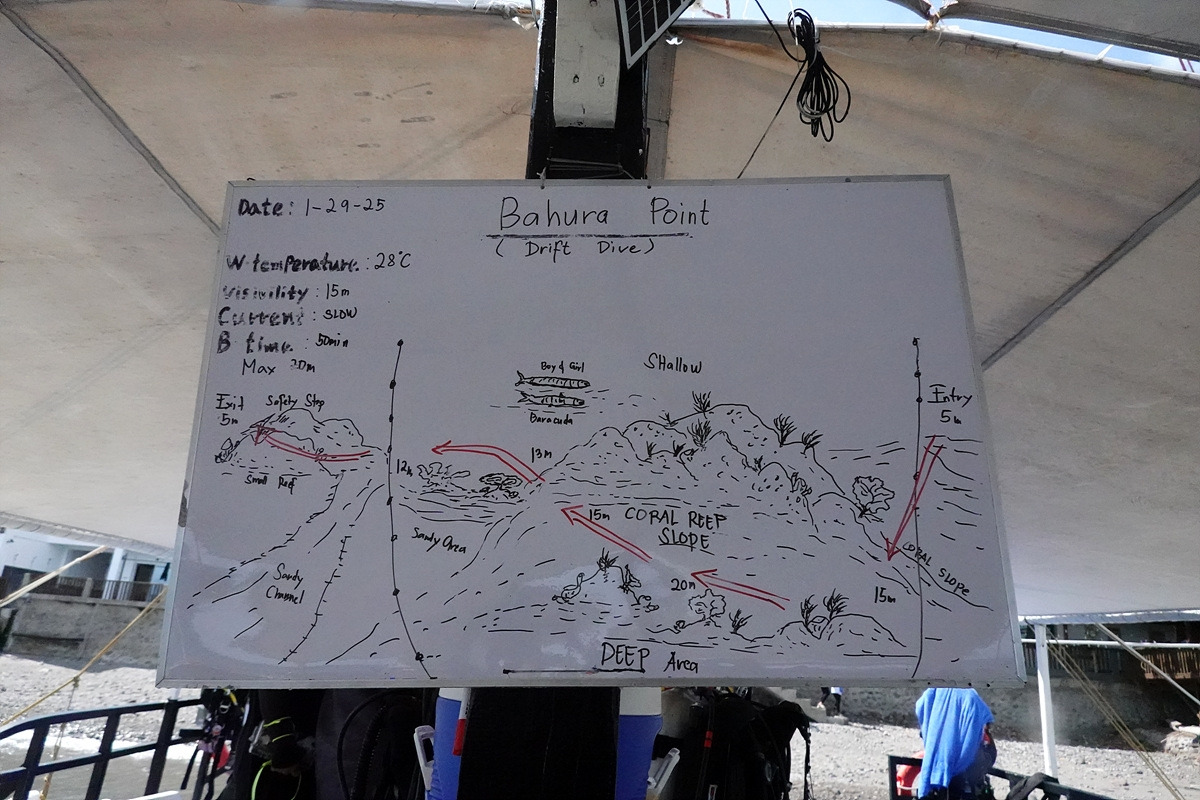 Date: 1-29-25
Bahura Point
( Drift Dive )
W temperature : 28°C
Visivility : 15m
Current : SLOW
B time : 50min
Max 20m
Boy & Girl
Baracuda
SHallow
Exit
5m
Safety Stop
Small Reef
Entry
5m
12m
13m
Sandy Area
15m
CORAL REEP
SLOPE
CORAL SLOPE
15m
Sandy
Channel
20m
DEEP Area